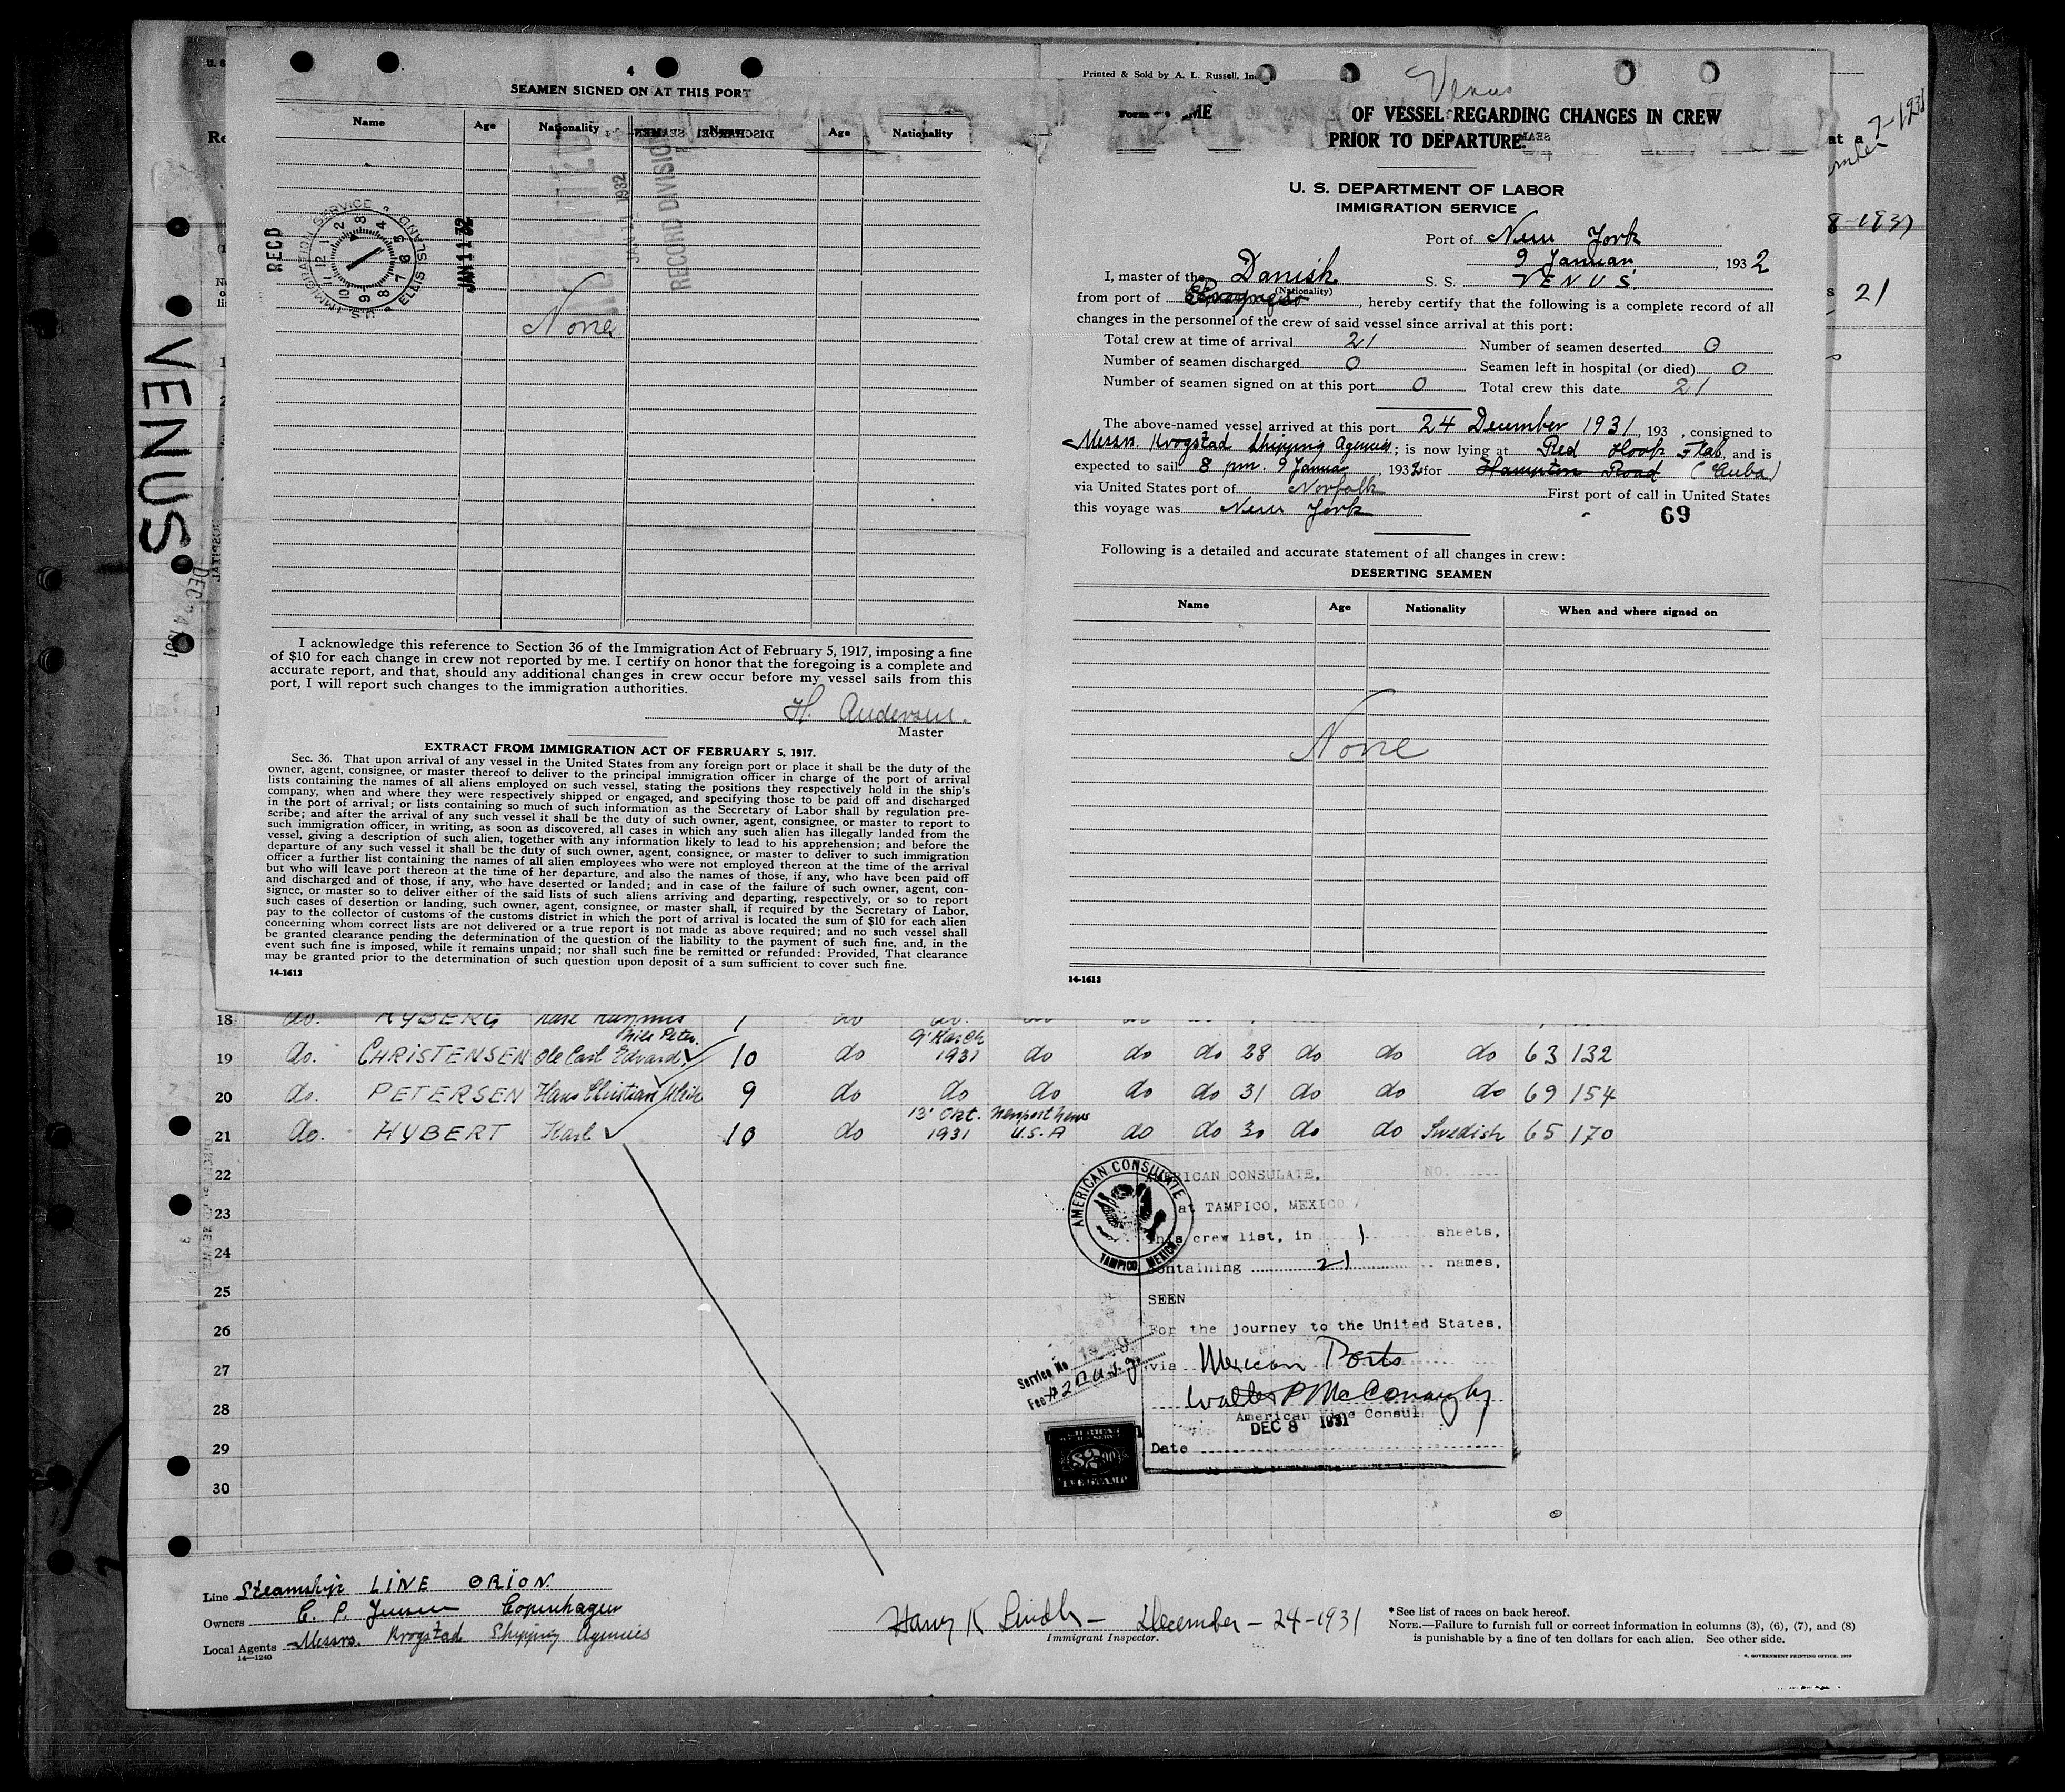 4
SEAMEN SIGNED ON AT THIS PORT
Name Age Nationality Name Age Nationality
IMMIGRATION SERVICE
U.S. ELLIS ISLAND
REC'D
JAN 11 32
JAN 11 1932
RECORD DIVISION
None
I acknowledge this reference to Section 36 of the Immigration Act of February 5, 1917, imposing a fine
of $10 for each change in crew not reported by me. I certify on honor that the foregoing is a complete and
accurate report, and that, should any additional changes in crew occur before my vessel sails from this
port, I will report such changes to the immigration authorities.
H. Andersen.
Master
EXTRACT FROM IMMIGRATION ACT OF FEBRUARY 5, 1917.
Sec. 36. That upon arrival of any vessel in the United States from any foreign port or place it shall be the duty of the
owner, agent, consignee, or master thereof to deliver to the principal immigration officer in charge of the port of arrival
lists containing the names of all aliens employed on such vessel, stating the positions they respectively hold in the ship's
company, when and where they were respectively shipped or engaged, and specifying those to be paid off and discharged
in the port of arrival; or lists containing so much of such information as the Secretary of Labor shall by regulation pre-
scribe; and after the arrival of any such vessel it shall be the duty of such owner, agent, consignee, or master to report to
such immigration officer, in writing, as soon as discovered, all cases in which any such alien has illegally landed from the
vessel, giving a description of such alien, together with any information likely to lead to his apprehension; and before the
departure of any such vessel it shall be the duty of such owner, agent, consignee, or master to deliver to such immigration
officer a further list containing the names of all alien employees who were not employed thereon at the time of the arrival
but who will leave port thereon at the time of her departure, and also the names of those, if any, who have been paid off
and discharged and of those, if any, who have deserted or landed; and in case of the failure of such owner, agent, con-
signee, or master so to deliver either of the said lists of such aliens arriving and departing, respectively, or so to report
such cases of desertion or landing, such owner, agent, consignee, or master shall, if required by the Secretary of Labor,
pay to the collector of customs of the customs district in which the port of arrival is located the sum of $10 for each alien
concerning whom correct lists are not delivered or a true report is not made as above required; and no such vessel shall
be granted clearance pending the determination of the question of the liability to the payment of such fine, and, in the
event such fine is imposed, while it remains unpaid; nor shall such fine be remitted or refunded: Provided, That clearance
may be granted prior to the determination of such question upon deposit of a sum sufficient to cover such fine.
14-1613
Printed & Sold by A. L. Russell, Inc
Venus
OF VESSEL REGARDING CHANGES IN CREW
PRIOR TO DEPARTURE.
U. S. DEPARTMENT OF LABOR
IMMIGRATION SERVICE
Port of New York
9 Januar, 1932
I, master of the Danish S. S. VENUS
(Nationality)
from port of Progreso, hereby certify that the following is a complete record of all
changes in the personnel of the crew of said vessel since arrival at this port:
Total crew at time of arrival 21 Number of seamen deserted 0
Number of seamen discharged 0 Seamen left in hospital (or died) 0
Number of seamen signed on at this port 0 Total crew this date 21
The above-named vessel arrived at this port 24 December 1931, 193 , consigned to
Messrs. Krogstad Shipping Agencies; is now lying at Red Hook Flab, and is
expected to sail 8 pm. 9 Januar, 1932 for Hampton Road (Cuba)
via United States port of Norfolk First port of call in United States
this voyage was New York
69
Following is a detailed and accurate statement of all changes in crew:
DESERTING SEAMEN
Name Age Nationality When and where signed on
None
14-1613
7-1931
8-1931
21
VENUS
DEC 24 1931
18 do. RYBERG
19 do. CHRISTENSEN Ole Carl Edvard Niels Peter. 10 do 9' March 1931 do do do 28 do do do 63 132
20 do. PETERSEN Hans Christian 9 do do do do do 31 do do do 69 154
21 do. HYBERT Karl 10 do 13' Okt. 1931 Newport News U.S.A do do 30 do do Swedish 65 170
22
23
24
25
26
27
28
29
30
AMERICAN CONSULATE
TAMPICO, MEXICO
AMERICAN CONSULATE, NO.
at TAMPICO, MEXICO
This crew list, in 1 sheets,
containing 21 names,
SEEN
For the journey to the United States,
via Mexican Ports
Walter P McConaughy
American Vice Consul
DEC 8 1931
Date
Service No
Fee
$2.00
Line Steamship LINE ORION.
Owners C. P. Jensen Copenhagen
Local Agents Messrs. Krogstad Shipping Agencies
14-1240
Harry K Lindh - December - 24-1931
Immigrant Inspector.
*See list of races on back hereof.
NOTE.—Failure to furnish full or correct information in columns (3), (6), (7), and (8)
is punishable by a fine of ten dollars for each alien. See other side.